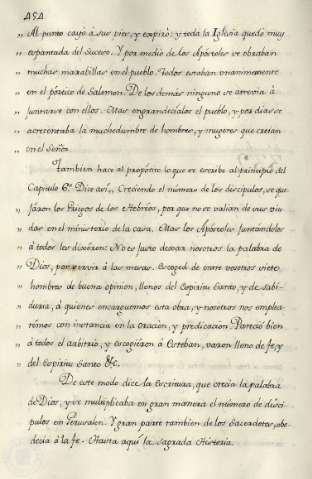 454
„ Al punto cayó à sus pies, y expiró: y toda la Iglesia quedó muy
„ espantada del suceso. Y por medio de los Apóstoles se obraban
„ muchas maravillas en el pueblo. Todos estaban unanimemente
„ en el pórtico de Salomon. De los demás ninguno se atrevia à
„ juntarse con ellos. Mas engrandecialos el pueblo, y por dias se
„ acrecentaba la muchedumbre de hombres, y mugeres que creian
„ en el Señor.
Tambien hace al propósito lo que se escribe al principio del
Capitulo 6º Dice asi,, Creciendo el número de los discipulos, se que
„ jaron los Griegos de los Hebréos, por que no se valian de sus viu
„ das en el ministerio de la casa. Mas los Apóstoles juntandolos
„ à todos les dixéron: No es justo dexar nosotros la palabra de
„ Dios, por servir à las mesas. Escoged de entre vosotros siete
„ hombres de buena opinion, llenos del Espiritu Santo, y de sabi-
„ duria, à quienes encarguemos esta obra, y nosotros nos emplea-
„ rémos con instancia en la oracion, y predicacion. Pareció bien
„ à todos el arbitrio, y escogiéron à Esteban, varon lleno de fe, y
„ del Espiritu Santo &c.
De este modo dice la Escritura, que crecia la palabra
de Dios, y se multiplicaba en gran manera el número de disci
pulos en Jerusalen. Y gran parte tambien de los Sacerdotes obe
decia à la fe. Hasta aquí la sagrada Historia.